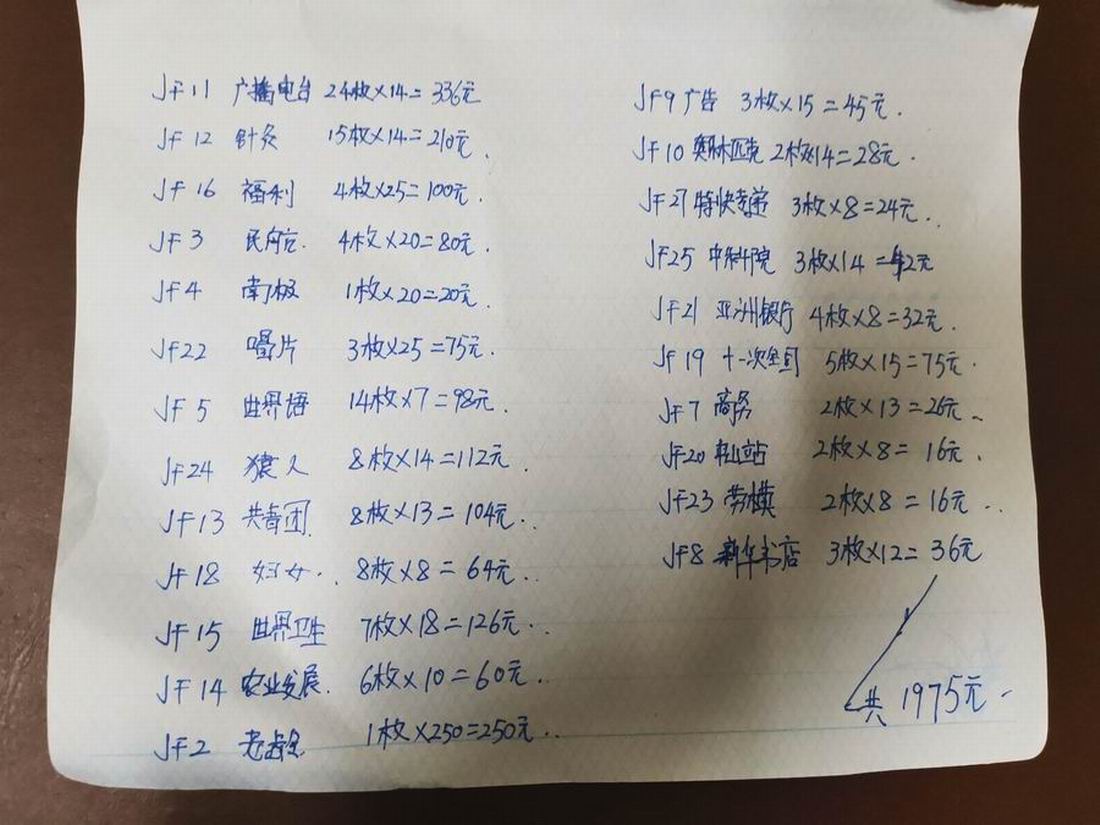 JF11 广播电台 24枚×14=336元
JF12 针灸 15枚×14=210元.
JF16 福利 4枚×25=100元.
JF3 民航. 4枚×20=80元.
JF4 南极 1枚×20=20元.
JF22 唱片 3枚×25=75元.
JF5 世界语 14枚×7=98元.
JF24 猿人 8枚×14=112元.
JF13 共青团 8枚×13=104元..
JF18 妇女.. 8枚×8=64元..
JF15 世界卫生 7枚×18=126元..
JF14 农业发展. 6枚×10=60元.
JF2 老龄 1枚×250=250元..
JF9 广告 3枚×15=45元.
JF10 奥林匹克 2枚×14=28元.
JF27 特快专递 3枚×8=24元.
JF25 中科院 3枚×14=42元
JF21 亚洲银行 4枚×8=32元.
JF19 十一次全国 5枚×15=75元.
JF7 商务 2枚×13=26元.
JF20 中山站 2枚×8=16元.
JF23 劳模 2枚×8=16元..
JF8 新华书店 3枚×12=36元
共1975元.